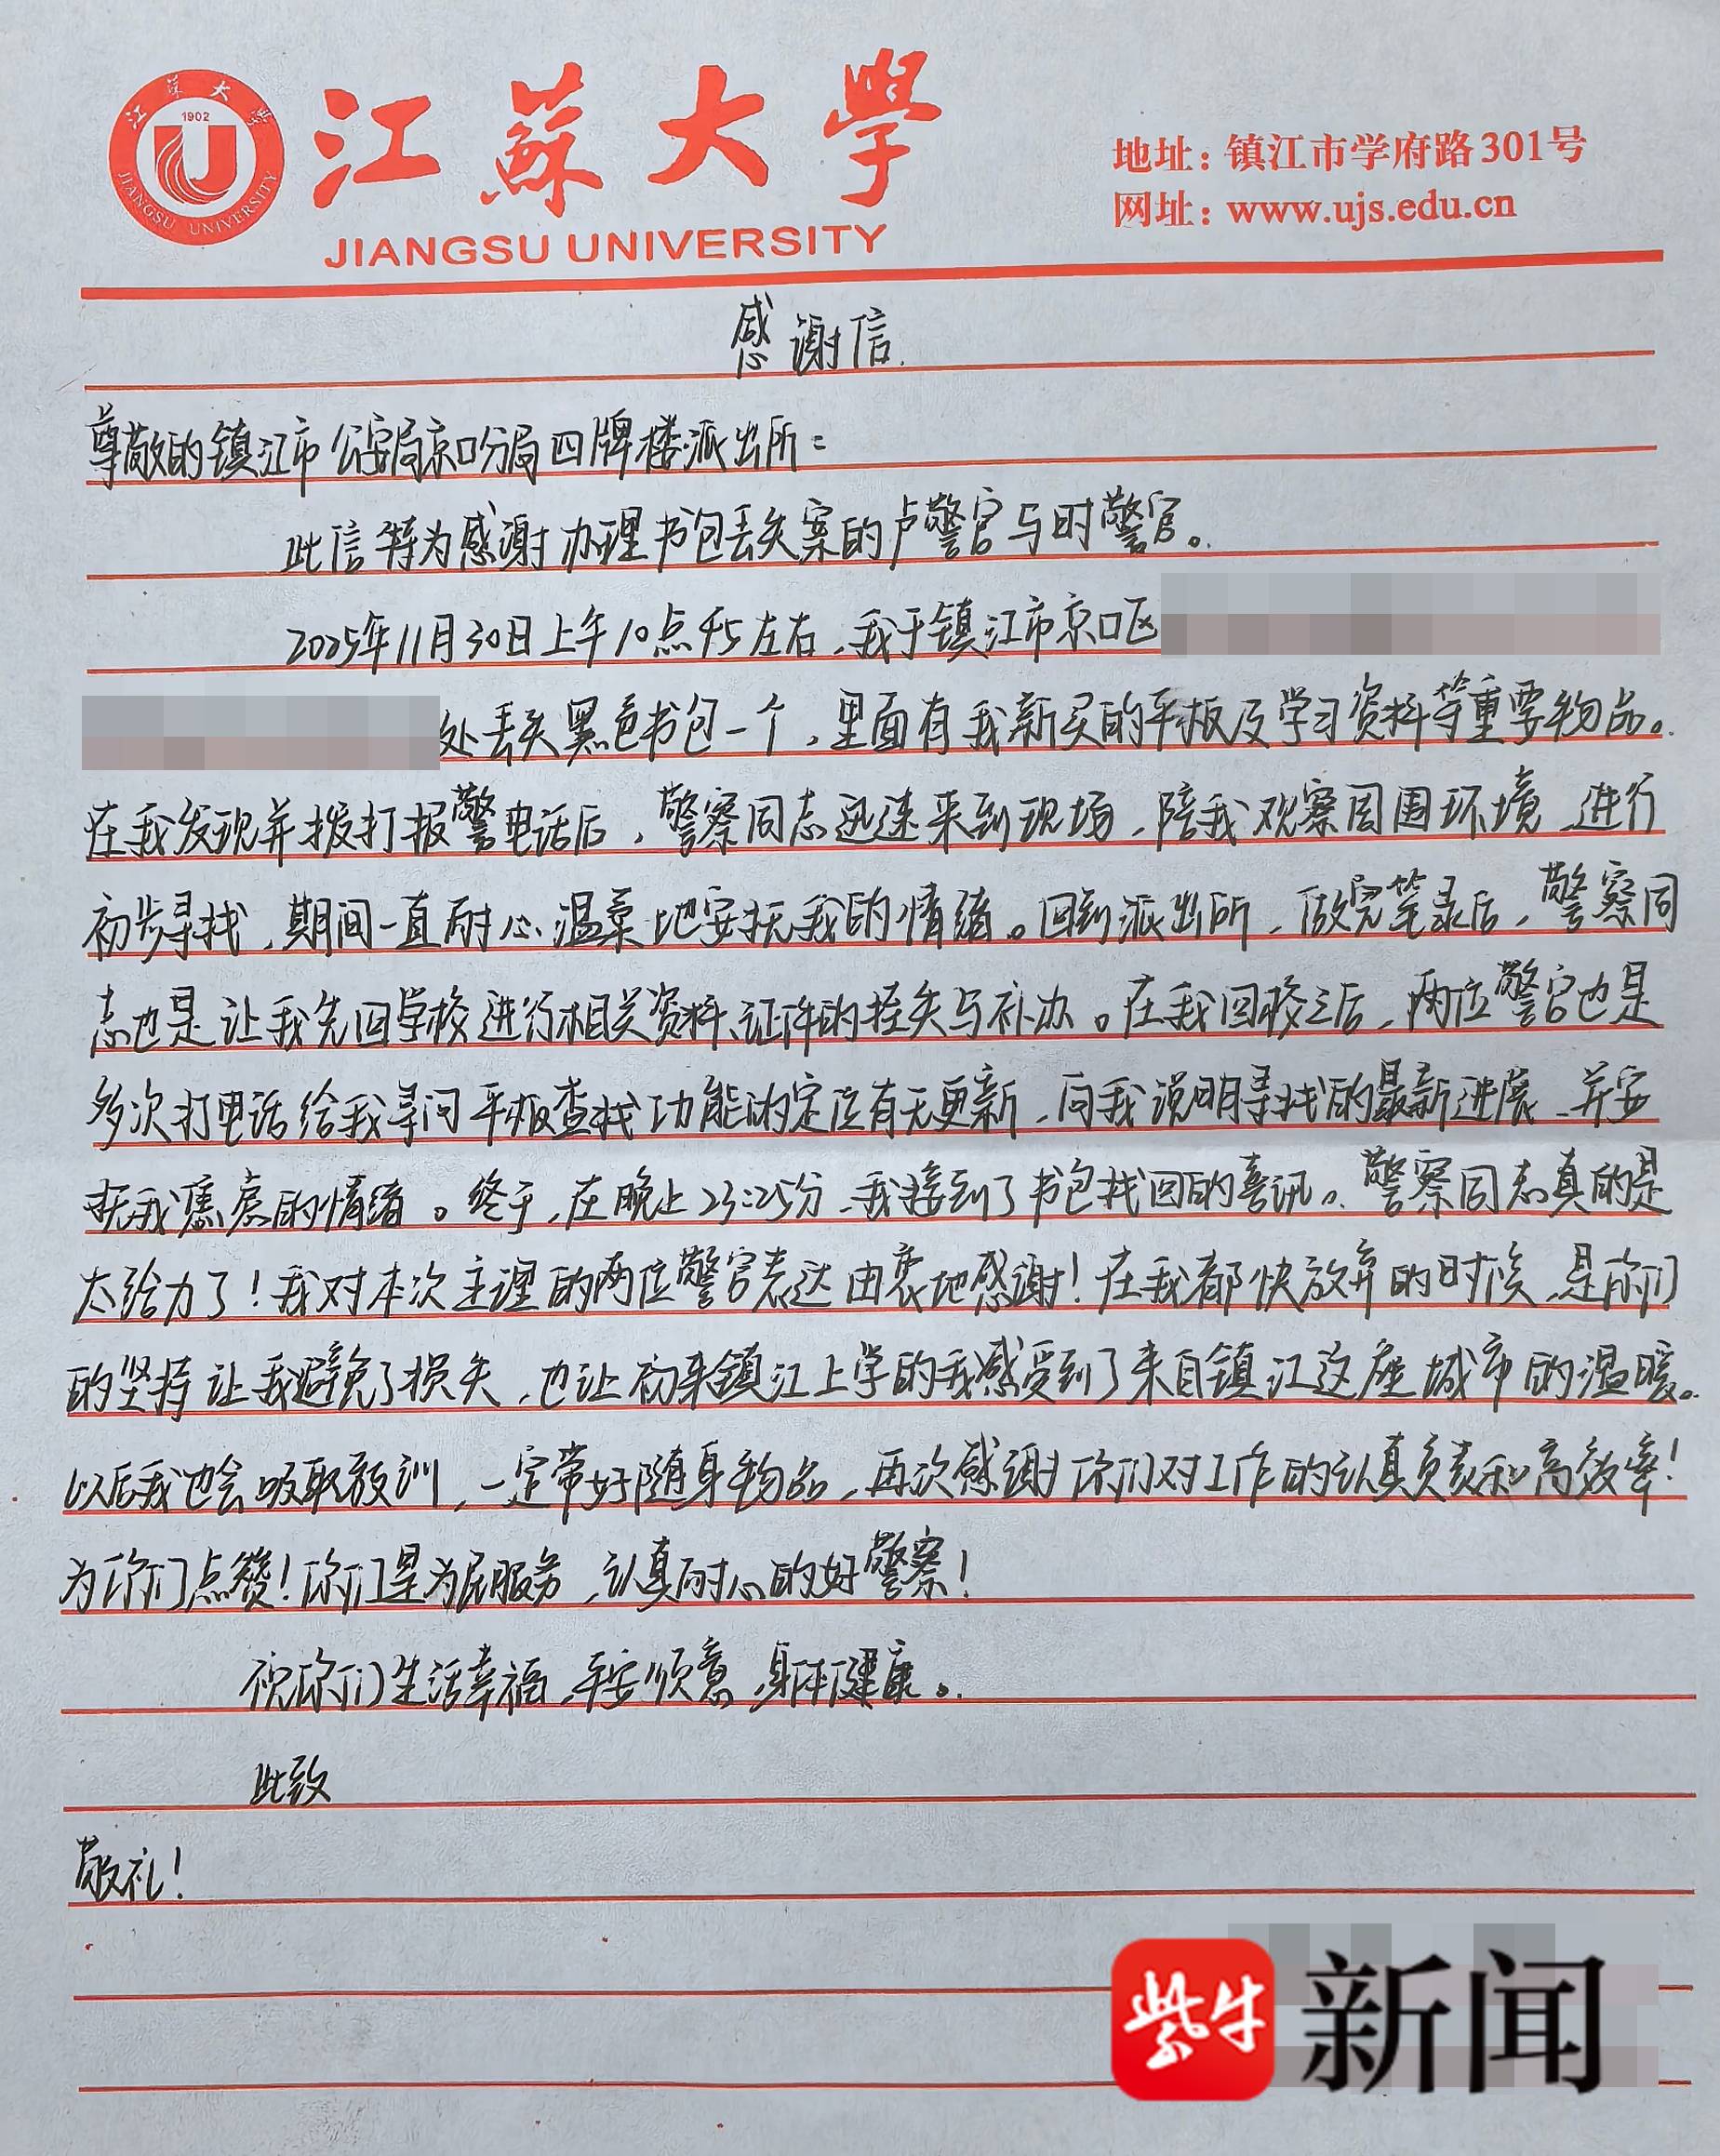 江蘇大學
1902
JIANGSU UNIVERSITY
江蘇大學
JIANGSU UNIVERSITY
地址：镇江市学府路301号
网址：www.ujs.edu.cn
感谢信.
尊敬的镇江市公安局京口分局四牌楼派出所：
此信特为感谢办理书包丢失案的卢警官与时警官。
2025年11月30日上午10点45左右，我于镇江市京口区
处丢失黑色书包一个，里面有我新买的平板及学习资料等重要物品。
在我发现并拨打报警电话后，警察同志迅速来到现场，陪我观察周围环境，进行
初步寻找，期间一直耐心温柔地安抚我的情绪。回到派出所，做完笔录后，警察同
志也是让我先回学校进行相关资料、证件的挂失与补办。在我回校之后，两位警官也是
多次打电话给我寻问平板查找功能的定位有无更新，向我说明寻找的最新进展，并安
抚我焦虑的情绪。终于，在晚上23:25分，我接到了书包找回的喜讯。警察同志真的是
太给力了！我对本次主理的两位警官表达由衷地感谢！在我都快放弃的时候，是你们
的坚持让我避免了损失，也让初来镇江上学的我感受到了来自镇江这座城市的温暖。
以后我也会吸取教训，一定带好随身物品，再次感谢你们对工作的认真负责和高效率！
为你们点赞！你们是为民服务，认真耐心的好警察！
祝你们生活幸福，平安顺意，身体健康。
此致
敬礼！
紫牛新闻